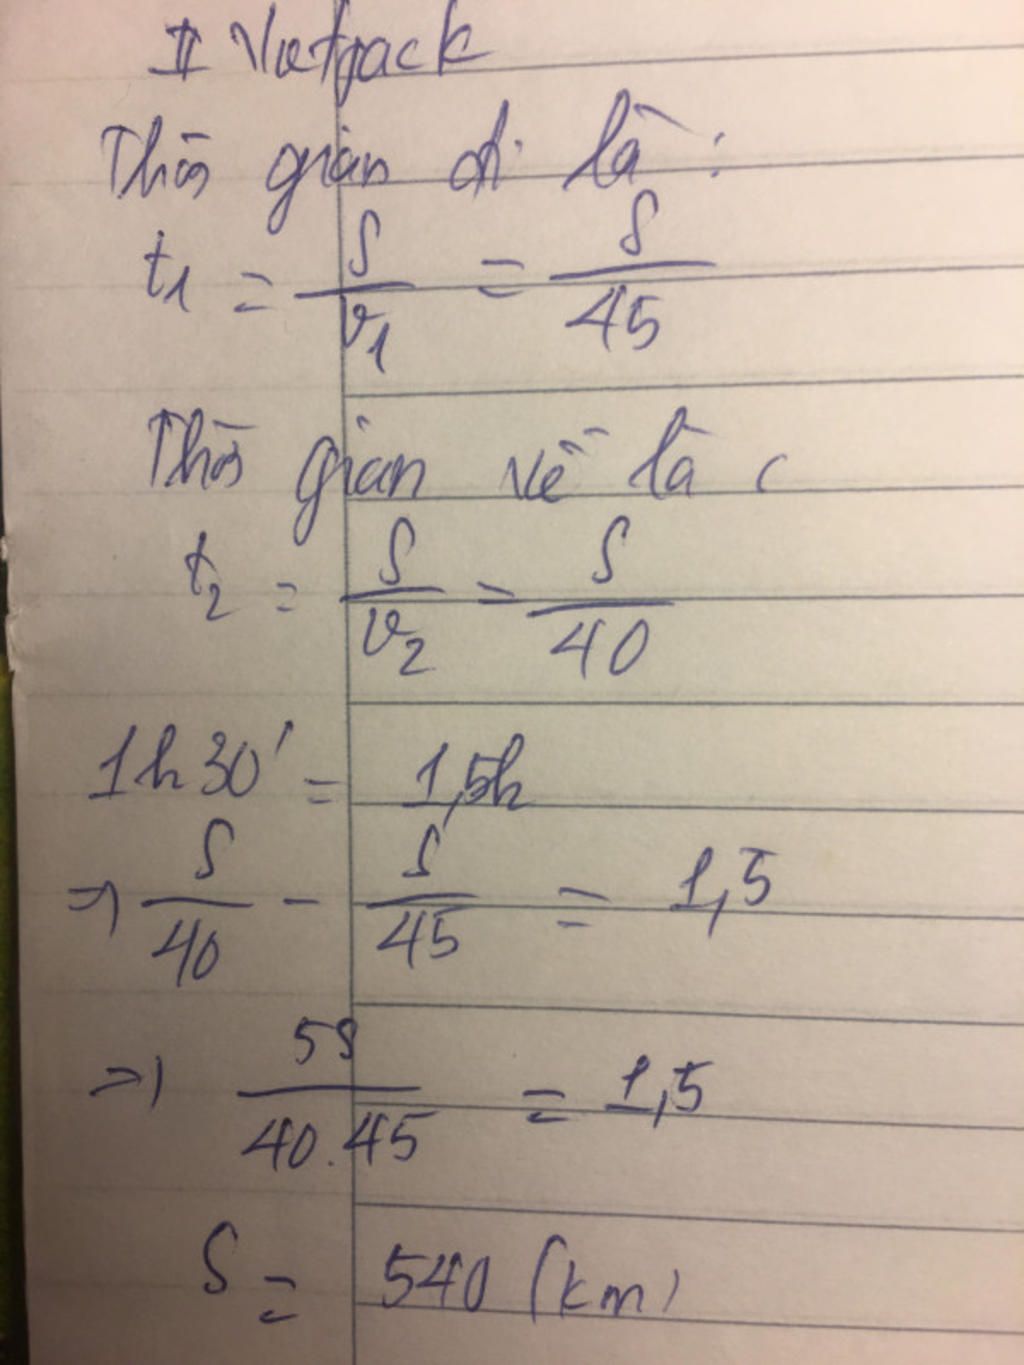 II Vietjack
Thời gian đi là :
t1 = S/v1 = S/45
Thời gian về là :
t2 = S/v2 = S/40
1h30' = 1,5h
=> S/40 - S/45 = 1,5
=> 5S/40.45 = 1,5
S = 540 (km)